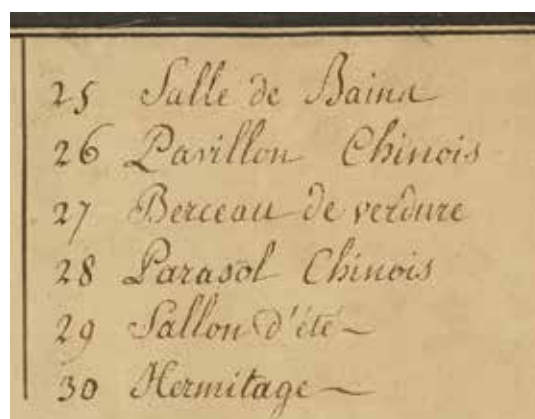 25 Salle de Bains
26 Pavillon Chinois
27 Berceau de verdure
28 Parasol Chinois
29 Sallon d'été
30 Hermitage